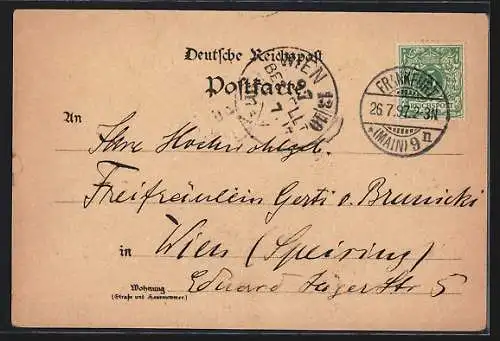 Deutsche Reichspost
Postkarte
WIEN 13/10
BESTELLT
FRANKFURT
26.7.97.2-3N
*(MAIN)9n
REICHSPOST
An
Ihre Hochwohlgeb.
Freifräulein Gerti v. Brunicki
in Wien (Speising)
Eduard Jägerstr 5
Wohnung
(Straße und Hausnummer)